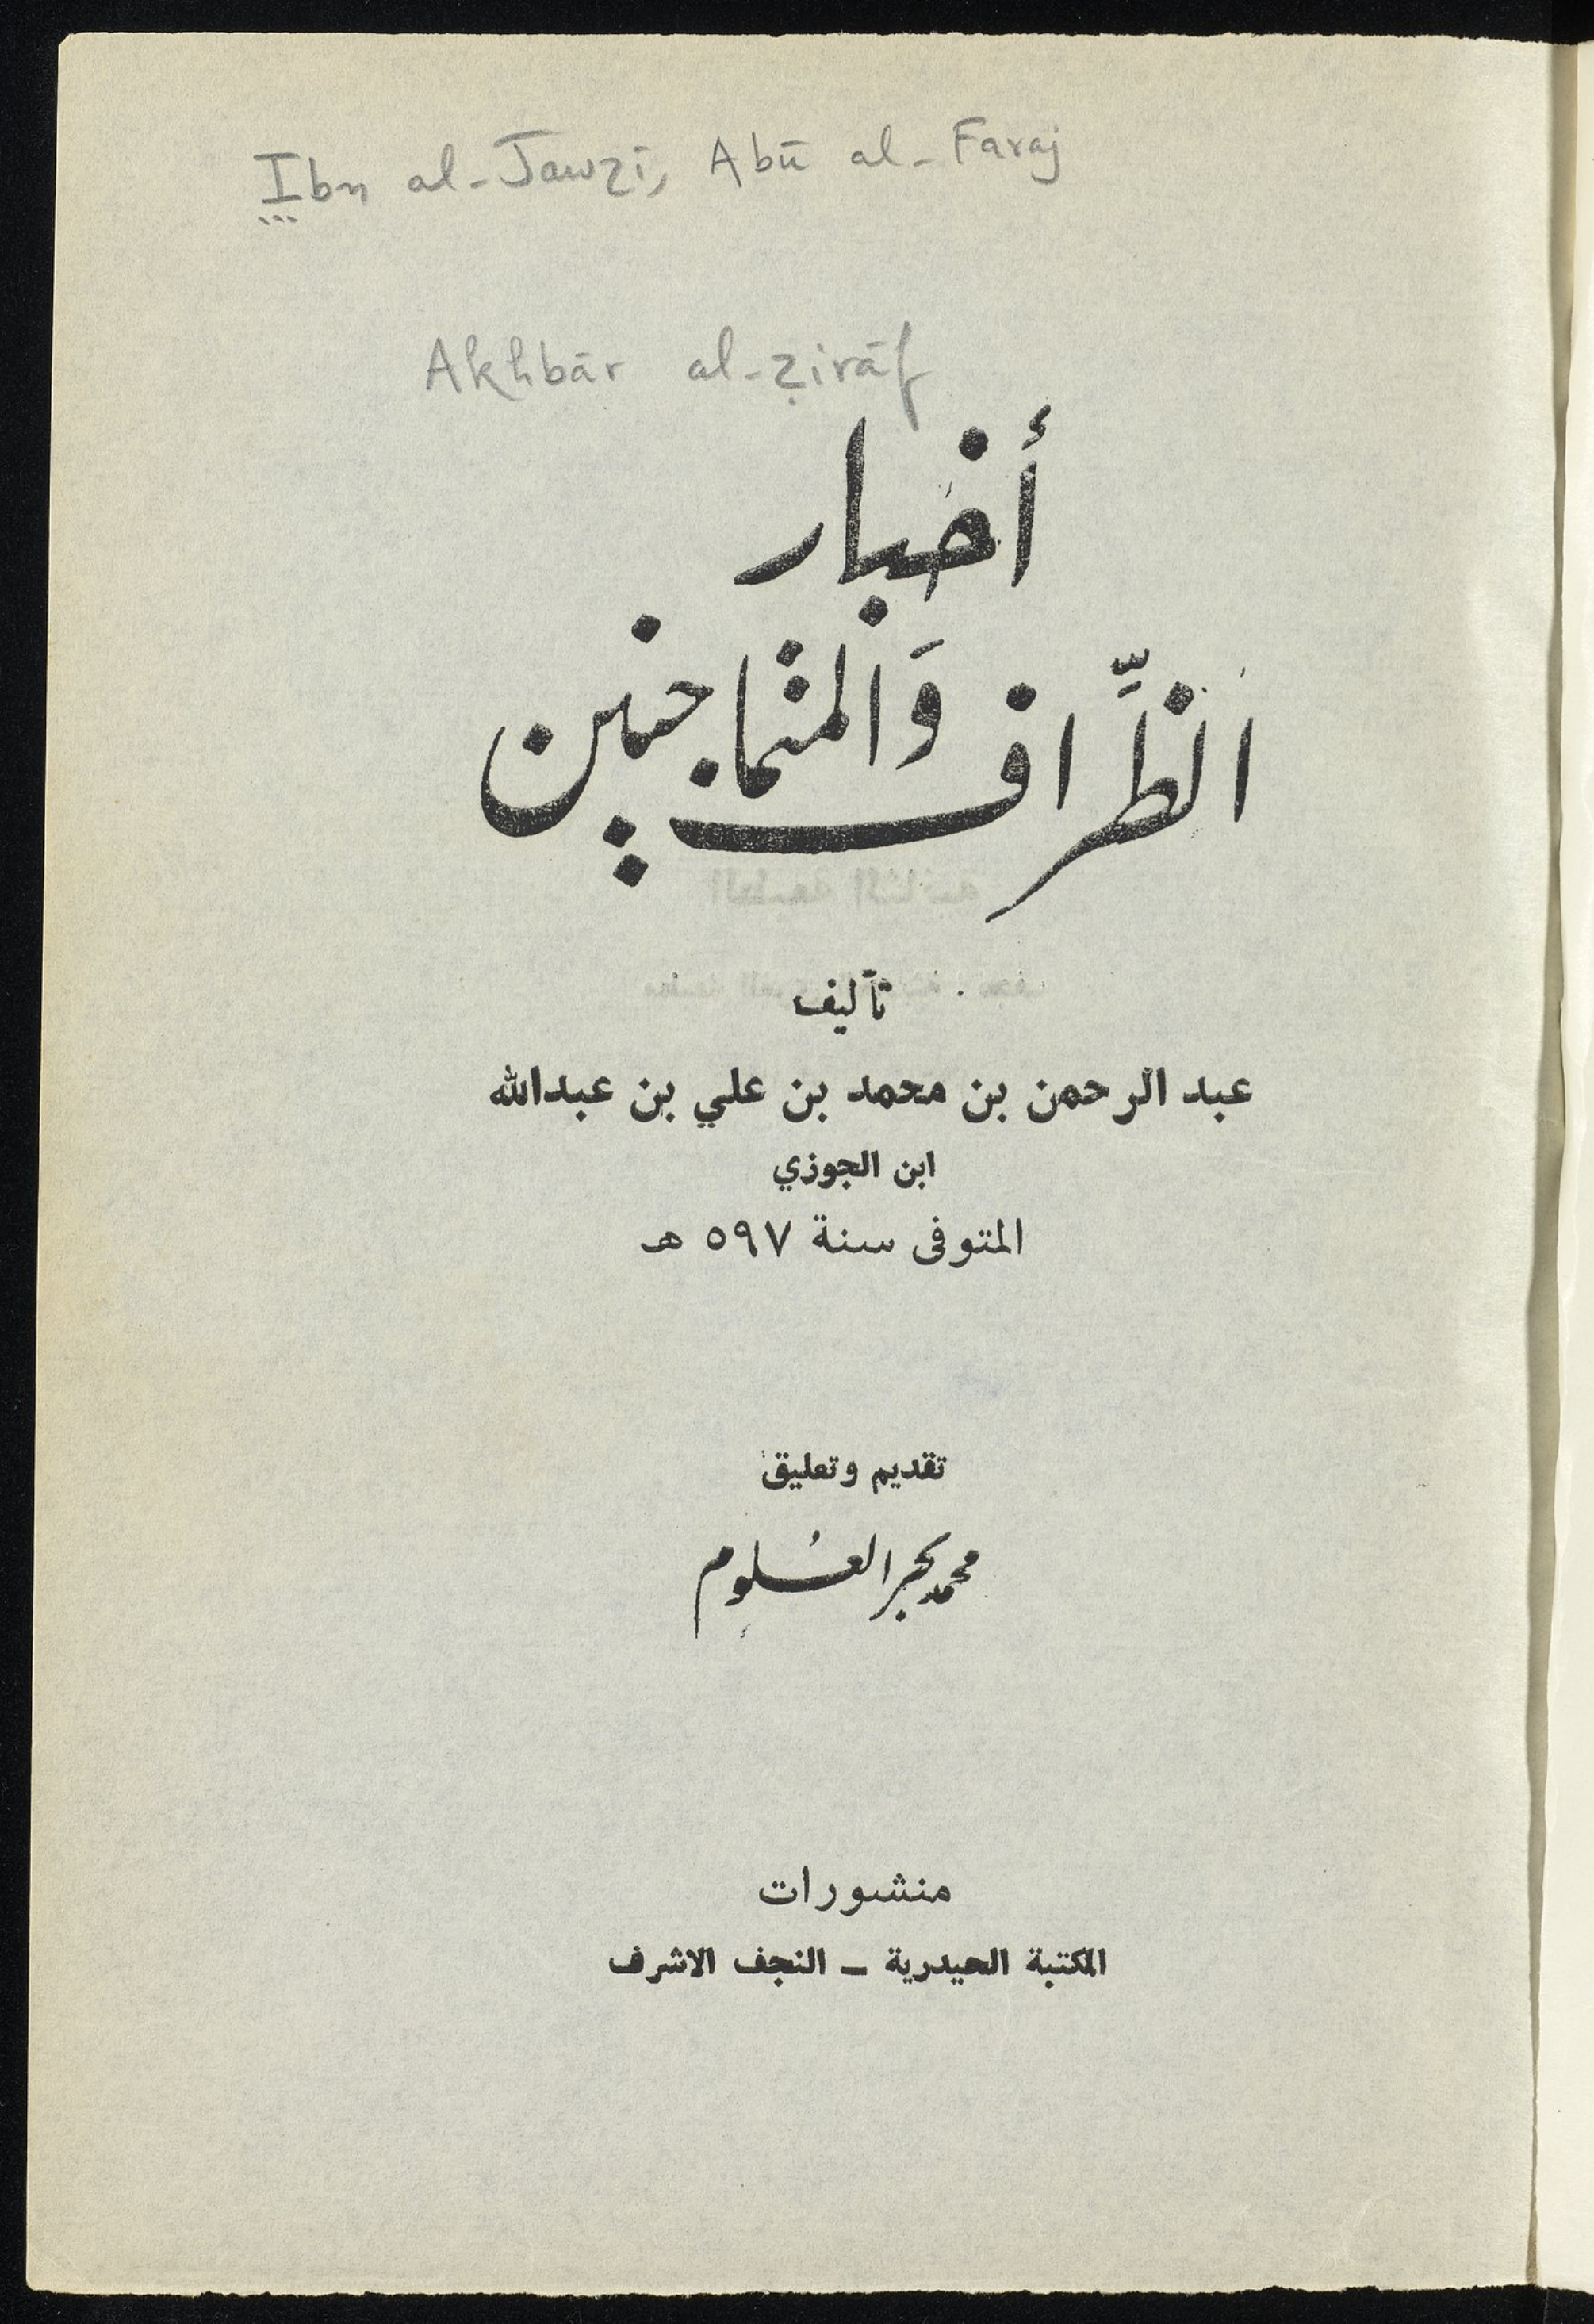 Ibn al-Jawzī, Abū al-Faraj
Akhbār al-ẓirāf
أخبار
الظِّراف وَالمتماجنين
تأليف
عبد الرحمن بن محمد بن علي بن عبدالله
ابن الجوزي
المتوفى سنة ٥٩٧ هـ
تقديم وتعليق
محمد بحر العُلوم
منشورات
المكتبة الحيدرية ــ النجف الاشرف